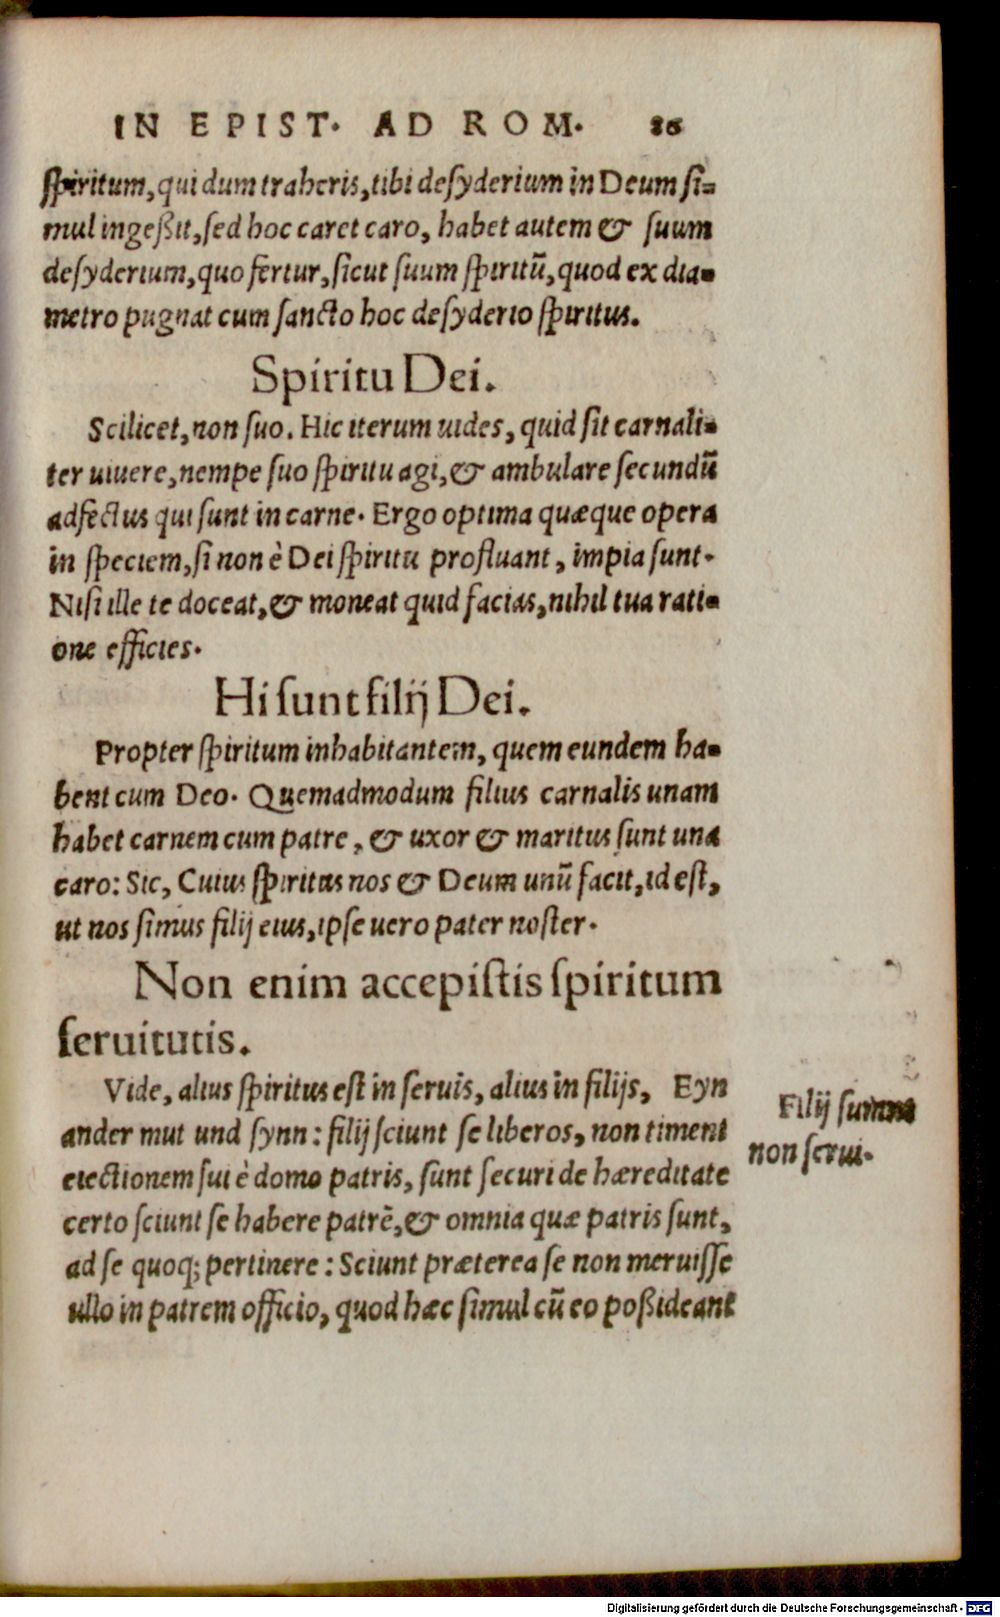 IN EPIST. AD ROM. 86
spiritum, qui dum traheris, tibi desyderium in Deum si=
mul ingeßit, sed hoc caret caro, habet autem & suum
desyderium, quo fertur, sicut suum spiritū, quod ex dia=
metro pugnat cum sancto hoc desyderio spiritus.
Spiritu Dei.
Scilicet, non suo. Hic iterum uides, quid sit carnali=
ter uiuere, nempe suo spiritu agi, & ambulare secundū
adfectus qui sunt in carne. Ergo optima quæque opera
in speciem, si non è Dei spiritu profluant, impia sunt.
Nisi ille te doceat, & moneat quid facias, nihil tua rati=
one efficies.
Hi sunt filij Dei.
Propter spiritum inhabitantem, quem eundem ha=
bent cum Deo. Quemadmodum filius carnalis unam
habet carnem cum patre, & uxor & maritus sunt una
caro: Sic, Cuius spiritus nos & Deum unū facit, id est,
ut nos simus filij eius, ipse uero pater noster.
Non enim accepistis spiritum
seruitutis.
Vide, alius spiritus est in seruis, alius in filijs, Eyn
ander mut und synn: filij sciunt se liberos, non timent
eiectionem sui è domo patris, sunt securi de hæreditate
certo sciunt se habere patrē, & omnia quæ patris sunt,
ad se quoq; pertinere: Sciunt præterea se non meruisse
ullo in patrem officio, quod hæc simul cū eo poßideant
Filij sumus
non serui.
Digitalisierung gefördert durch die Deutsche Forschungsgemeinschaft - DFG